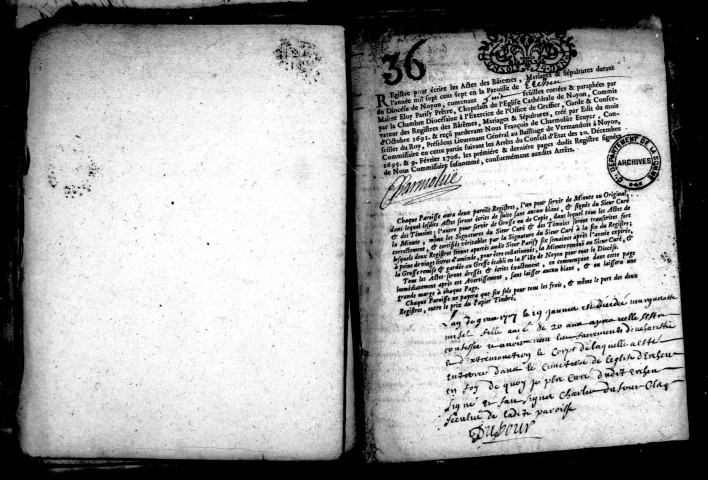 36
REgistre pour écrire les Actes des Bâtêmes, Mariages & Sépultures durant
l'année mil sept cent sept en la Paroisse de Ercheu
de Diocése de Noyon, contenant huit feuilles cottées & paraphées par
Maître Eloy Parisy Prêtre, Chapelain de l'Eglise Cathédrale de Noyon, Commis
par la Chambre Diocésaine à l'Exercice de l'Office de Greffier, Garde & Conser-
vateur des Registres des Bâtêmes, Mariages & Sépultures, créé par Edit du mois
d'Octobre 1691. & reçû pardevant Nous François de Charmolüe Ecuyer, Con-
seiller du Roy, Président Lieutenant Général au Bailliage de Vermandois à Noyon,
Commissaire en cette partie suivant les Arrêts du Conseil d'Etat des 20. Décembre
1695. & 9. Février 1706. les première & dernière pages dudit Registre signées
de Nous Commissaire susnommé, conformément ausdits Arrêts.
Charmolüe
DÉPARTEMENT DE LA SOMME
ARCHIVES
Chaque Paroisse aura deux pareils Registres, l'un pour servir de Minute ou Original,
dans lequel lesdits Actes seront écrits de suite sans aucun blanc, & signés du Sieur Curé
& des Témoins; l'autre pour servir de Grosse ou de Copie, dans lequel tous les Actes de
la Minute, même les Signatures du Sieur Curé & des Témoins seront transcrites fort
correctement, & certifiés véritables par la Signature du Sieur Curé à la fin du Registre;
lesquels deux Registres seront aportés audit Sieur Parisy six semaines après l'année expirée,
à peine de vingt livres d'amende, pour être collationnés; la Minute rendue au Sieur Curé, &
la Grosse remise & gardée au Greffe établi en la Ville de Noyon pour tout le Diocése.
Tous les Actes seront dressés & écrits exactement, en commençant dans cette page
immédiatement après cet Avertissement, sans laisser aucun blanc, & en laissant une
grande marge à chaque Page.
Chaque Paroisse ne payera que six sols pour tous les frais, & même le port des deux
Registres, outre le prix du Papier Timbré.
L'an de grace 1707 le 29 janvier est decedee marguerite
fille aagée de 20 ans apres
confessee et avoir receu les sacrements d'eucharistie
et d'extremonction le Corps de laquelle a esté
enterré dans le cimetiere de leglise d'Ercheu
en foy de quoy je pbre curé dudit Ercheu
signé et fait signer Charles Dufour Clerc
seculier de ladite paroisse
Dufour